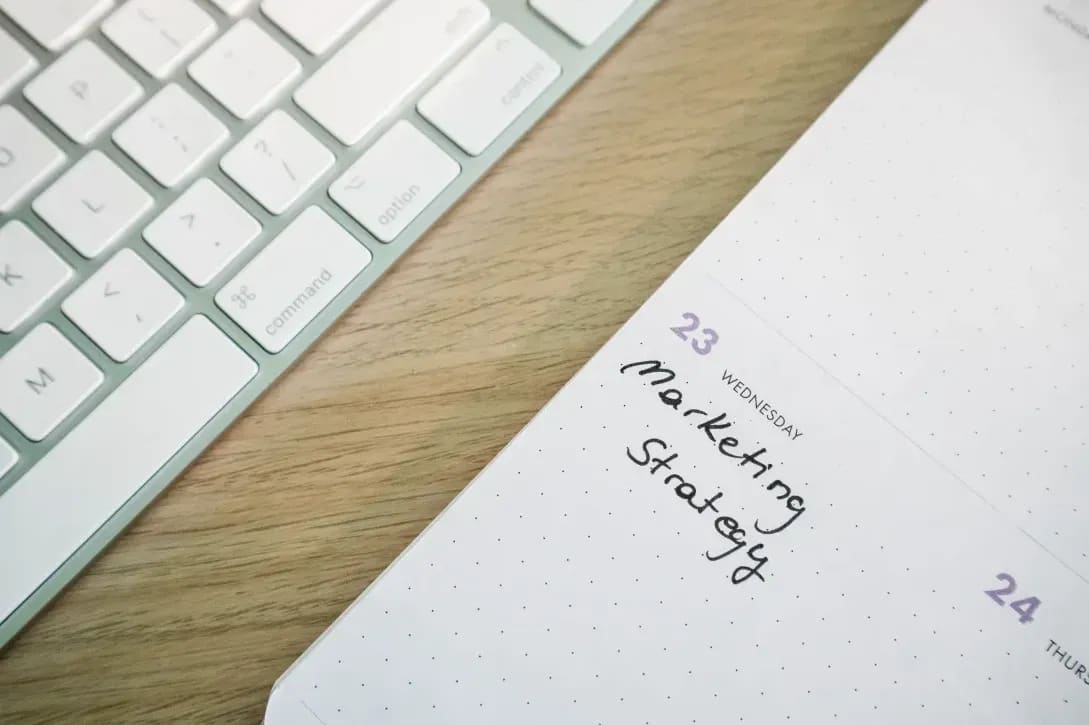 P
L
K
M
?
/
>
.
<
,
⌘
command
⌥
option
^
control
23
WEDNESDAY
Marketing
Strategy
24